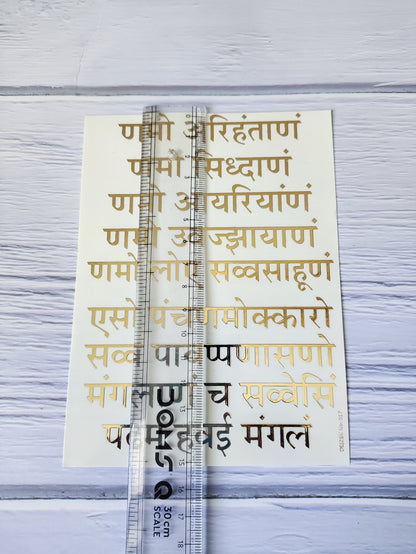 णमो अरिहंताणं
णमो सिध्दाणं
णमो आयरियांणं
णमो उवज्झायाणं
णमो लोए सव्वसाहूणं
एसो पंचणमोक्कारो
सव्व पावप्पणासणो
मंगलाणं च सव्वेसिं
पढमं हवई मंगलं
30cm
SCALE